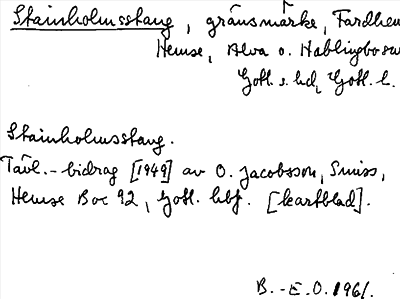 Stainholmsstaug, gränsmärke, Fardhem
Hemse, Alva o. Hablingbo sn
Gotl. s. hd, Gotl. l.
Stainholmsstaug.
Tävl.-bidrag [1949] av O. Jacobsson, Smiss,
Hemse Box 92, Gotl. hbf. [kartblad].
B.-E.O. 1961.